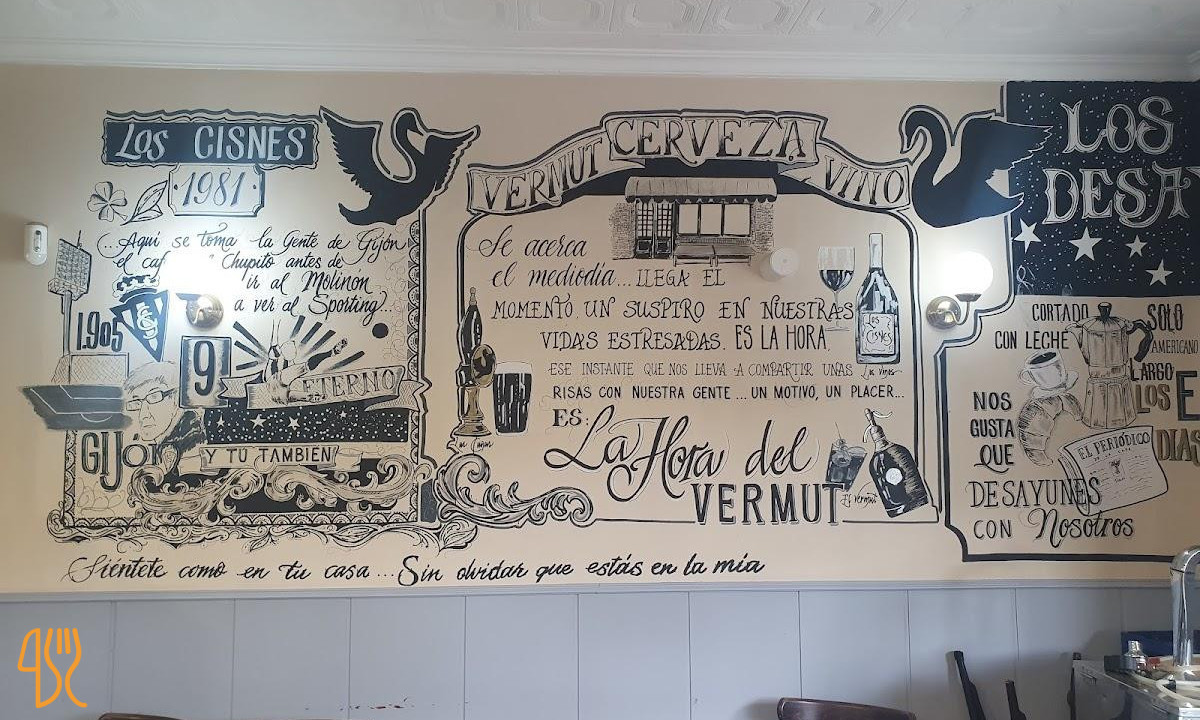 LOS CISNES
1981
...Aquí se toma la Gente de Gijón
el Chupito antes de
ir al Molinón
a ver al Sporting...
1.905
9!
ETERNO
GIJÓN
Y TU TAMBIEN
VERMUT CERVEZA VINO
Se acerca
el mediodía... LLEGA EL
MOMENTO, UN SUSPIRO EN NUESTRAS
VIDAS ESTRESADAS. ES LA HORA,
ESE INSTANTE QUE NOS LLEVA A COMPARTIR UNAS
RISAS CON NUESTRA GENTE... UN MOTIVO, UN PLACER...
ES:
La Hora del
VERMUT
Las Cañas
Los CISNES
Los Vinos
El Vermut
LOS
DESA
CORTADO
CON LECHE
SOLO
AMERICANO
LARGO
NOS
GUSTA
QUE
DESAYUNES
CON Nosotros
EL PERIÓDICO
LOS
DIAS
Siéntete como en tu casa... Sin olvidar que estás en la mía